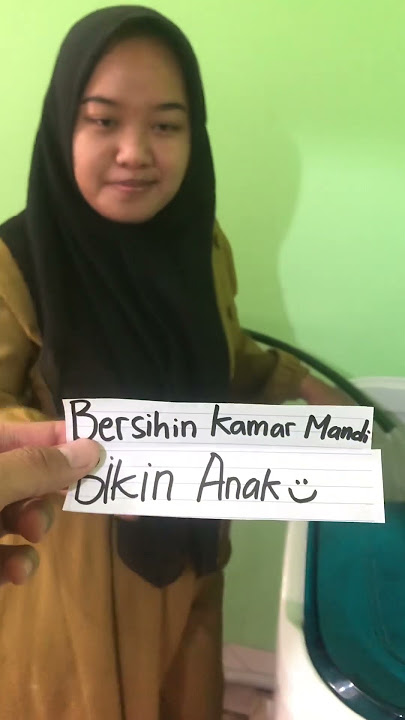 Bersihin Kamar Mandi
Bikin Anak